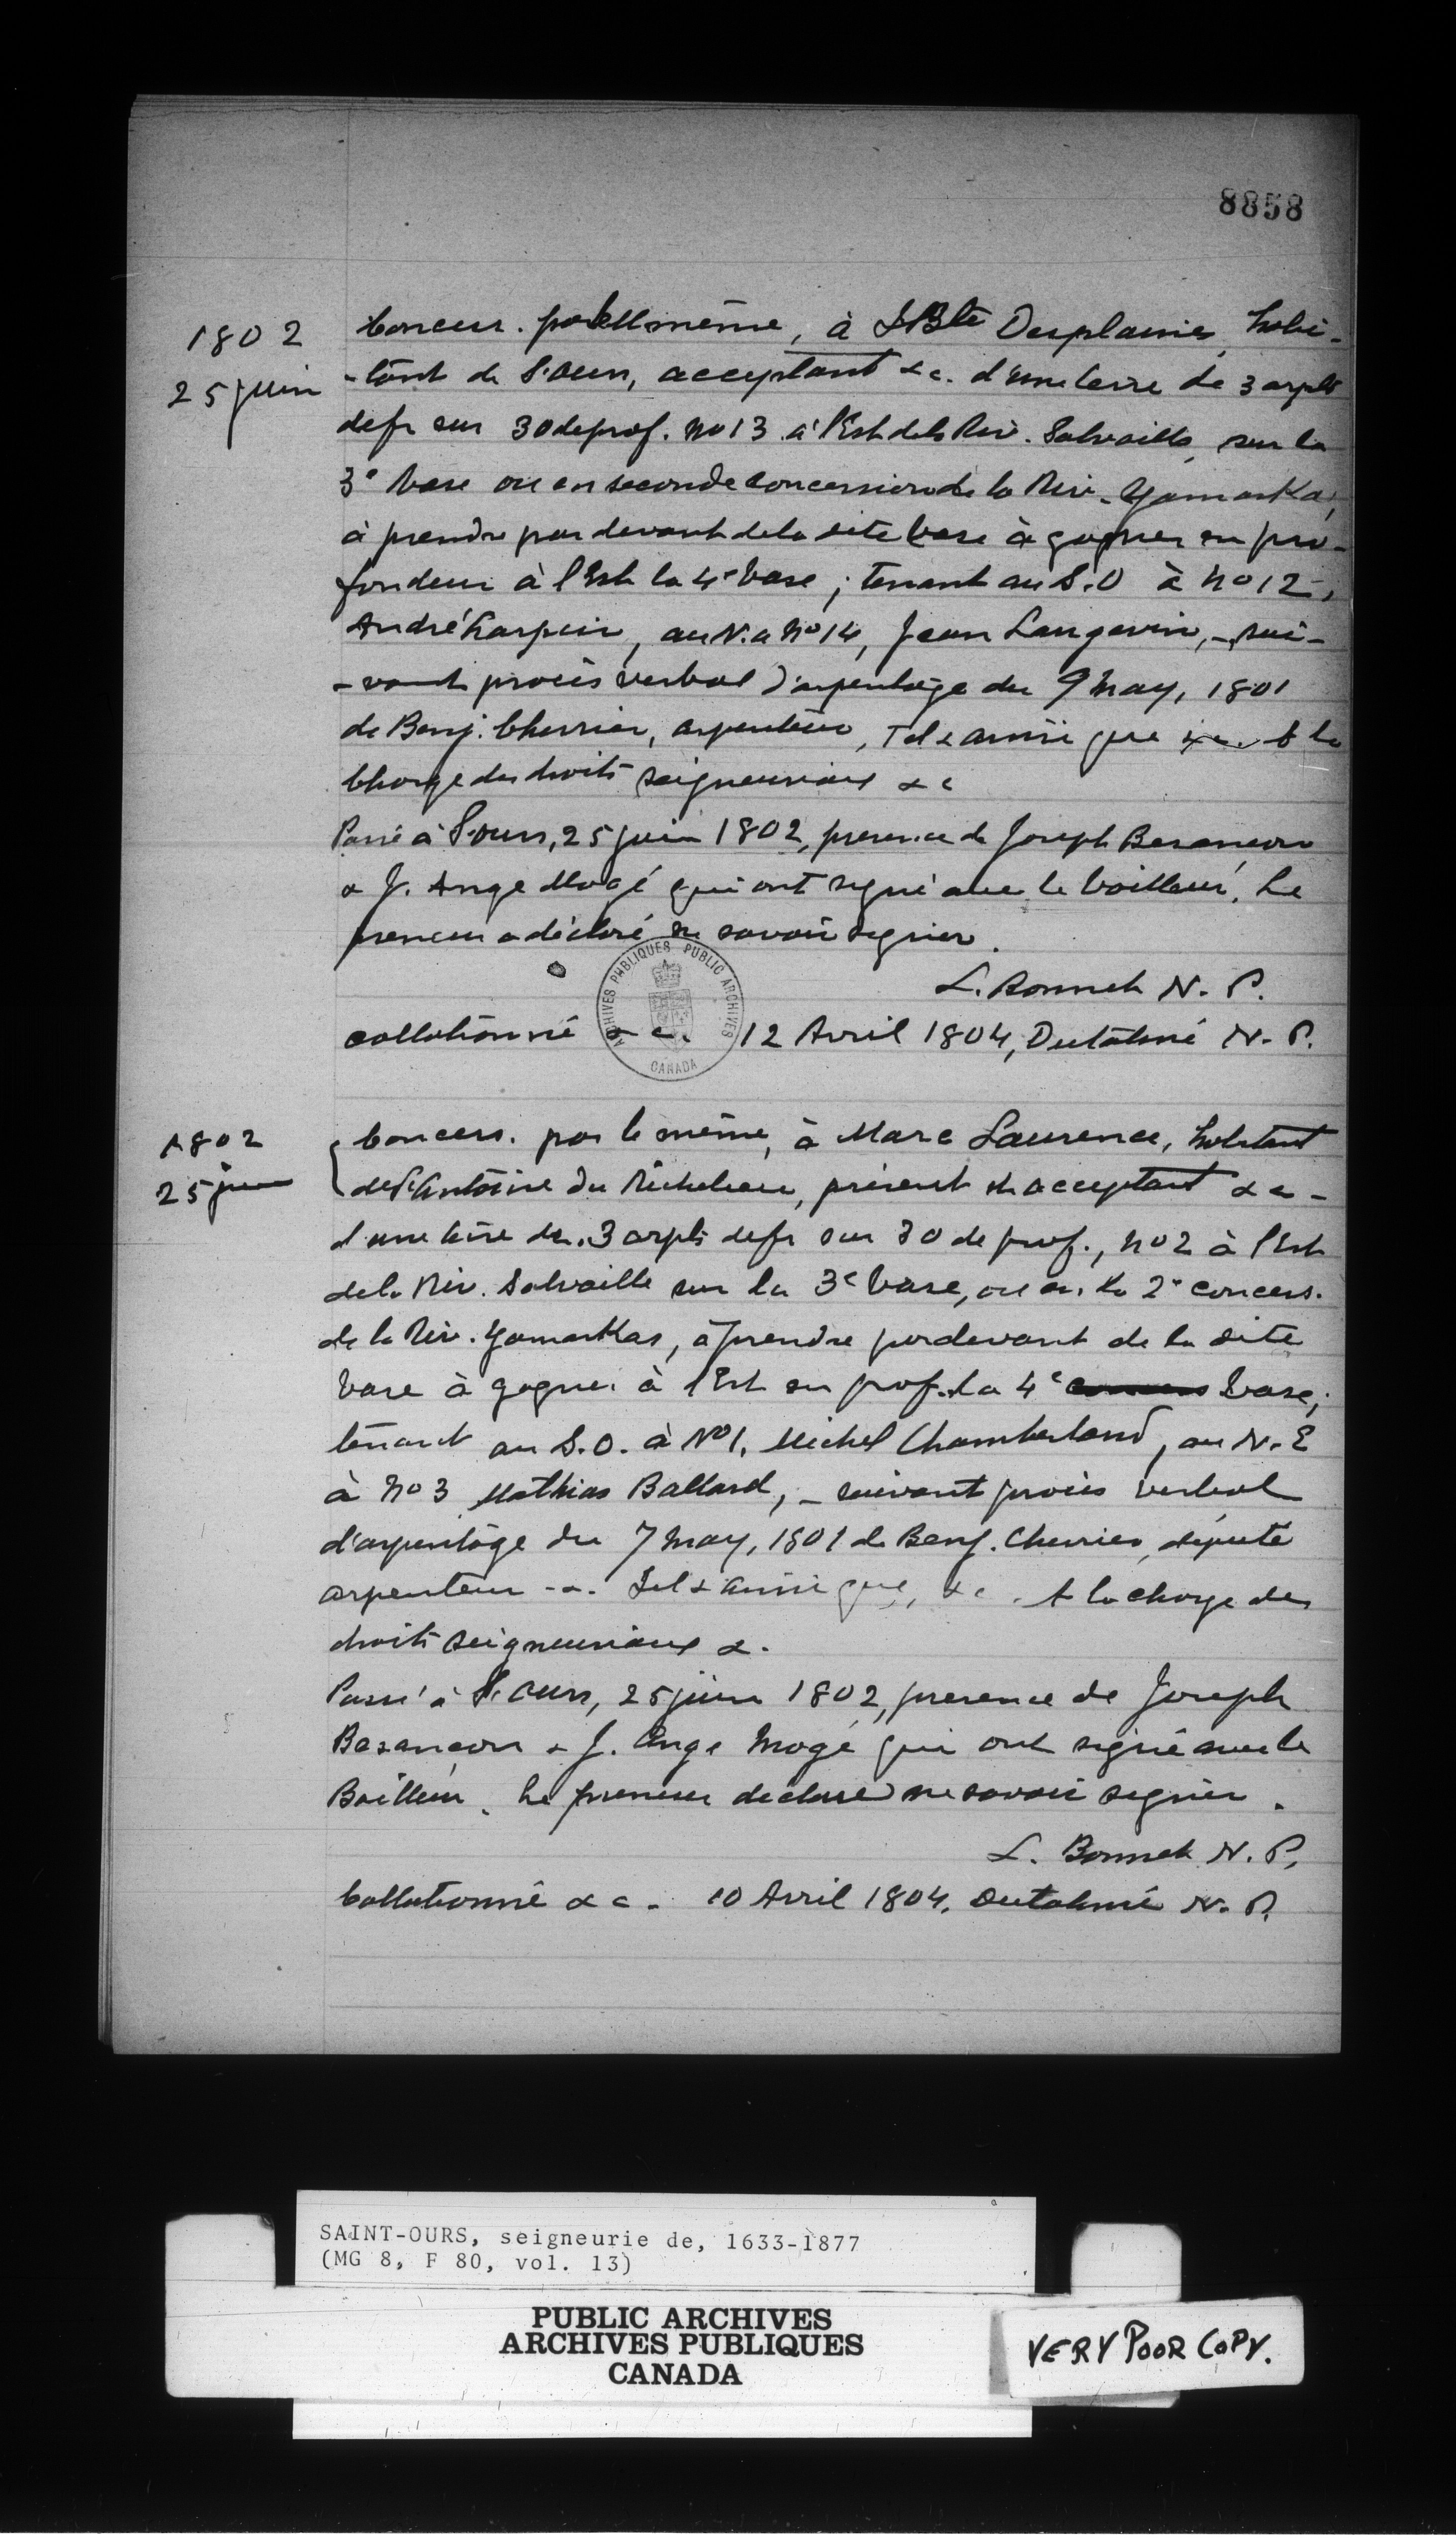 8858
1802
25 juin
Concess. par le même, à J Bte Desplaines, habi-
-tant de St. Ours, acceptant &c. d'une terre de 3 arpts
de fr sur 30 de prof. No 13 à l'Est de la Riv. Salvaille, sur la
3e base ou en seconde concession de la Riv. Yamaska,
à prendre par devant de la dite base à gagner en pro-
fondeur à l'Est la 4e base; tenant au S.O à No 12,
André, au N. a No 14, Jean Langevin, - sui-
-vant procès verbal d'arpentage du 9 May, 1801
de Benj. Cherrier, arpenteur, Tel & ainsi que &c. A la
charge des droits seigneuriaux &c
Passé à St. Ours, 25 juin 1802, presence de Joseph Besançon
& J. Ange Mogé qui ont signé avec le bailleur. Le
preneur a déclaré ne savoir signer.
L. Bonnet N. P.
collationné &c. 12 Avril 1804, Dutalmé N. P.
ARCHIVES PUBLIQUES PUBLIC ARCHIVES
CANADA
1802
25 juin
Concess. par le même, à Marc Laurence, habitant
de St Antoine du Richelieu, présent et acceptant &c -
d'une terre de 3 arpts de fr sur 30 de prof., No 2 à l'Est
de la Riv. Salvaille sur la 3e base, ou en la 2e concess.
de la Riv. Yamaskas, à prendre par devant de la dite
base à gagner à l'Est en prof. la 4e base;
tenant au S.O. à No 1, Michel Chamberland, au N. E
à No 3 Mathias Ballard, - suivant procès verbal
d'arpentage du 7 May, 1801 de Benj. Cherrier, député
arpenteur -. Tel & ainsi que, &c. A la charge des
droits seigneuriaux &.
Passé à St. Ours, 25 juin 1802, presence de Joseph
Besançon & J. Ange Mogé qui ont signé avec le
Bailleur. Le preneur declare ne savoir signer.
L. Bonnet N. P.
Collationné &c. 10 Avril 1804. Dutalmé N. P.
SAINT-OURS, seigneurie de, 1633-1877
(MG 8, F 80, vol. 13)
PUBLIC ARCHIVES
ARCHIVES PUBLIQUES
CANADA
VERY POOR COPY.